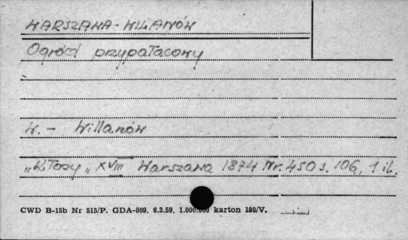 WARSZAWA - WILANÓW
Ogród przypałacowy
W. - Willanów
„Kłosy„ XVIII Warszawa 1874 Nr. 450 s. 106, 1 il.
CWD B-15b Nr 515/P. GDA-809. 6.3.59. 1.000.000 karton 180/V.